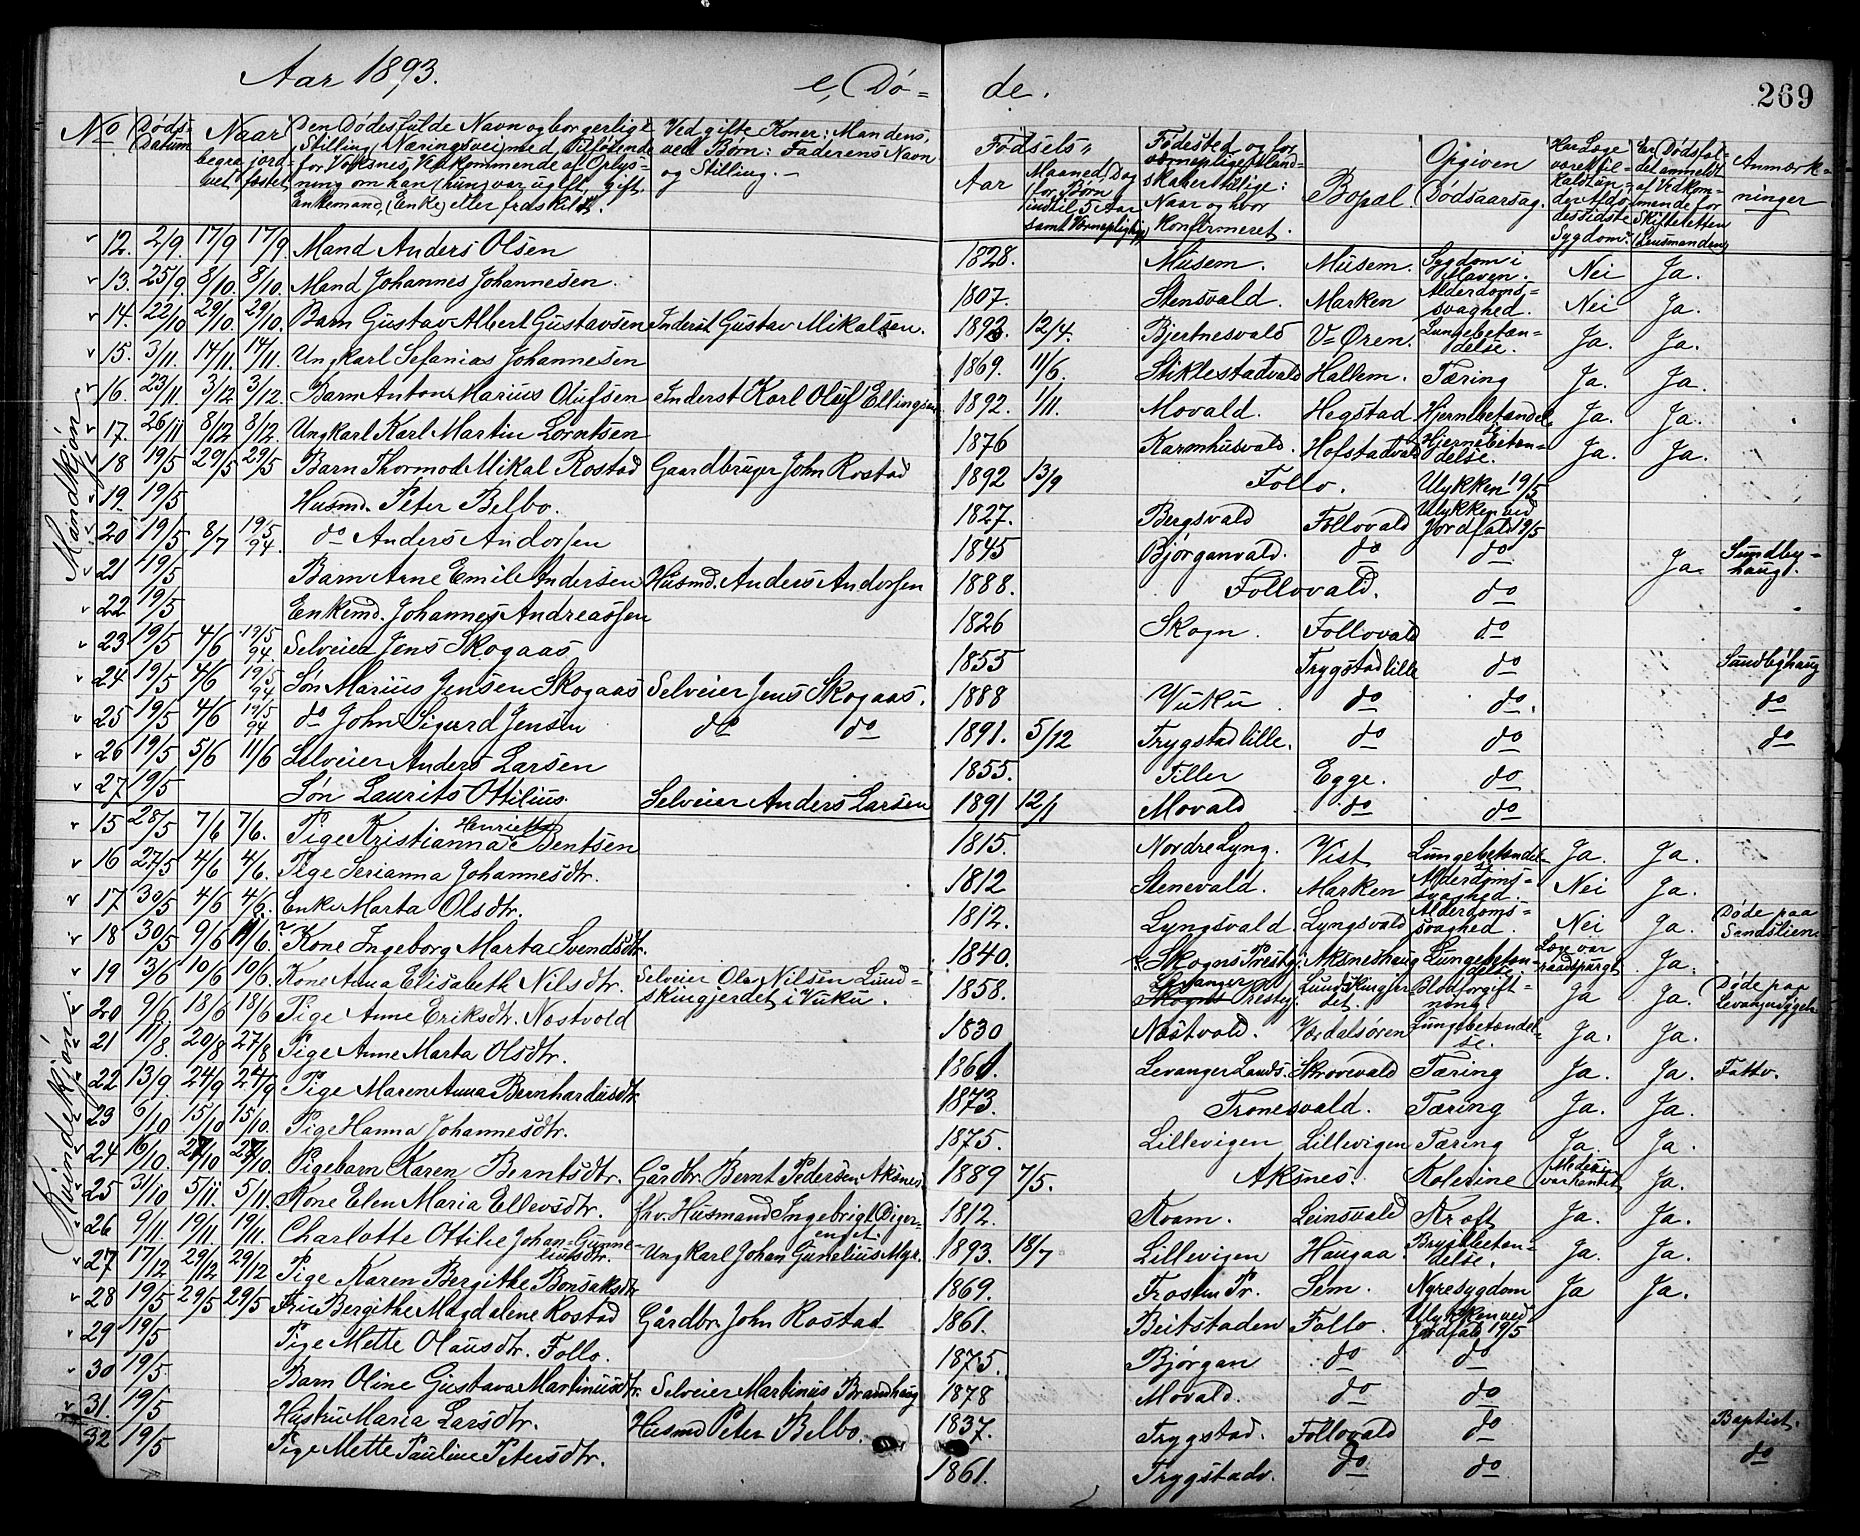 Aar 1893. e, Dø= de. 269
No Døds-Datum Naar begravet jordfæstet Den Dødes fulde Navn og borgerlige Stilling (Næringsvei) med Tilføiende for Voksnes Vedkommende af Oplysning om han (hun) var ugift, gift, Enkemand, (Enke) eller fraskildt. Ved gifte Koner: Mandens, ved Børn: Faderens Navn og Stilling.— Fødsels- Aar Maaned, Dag (for Børn indtil 5 Aar samt Værnepligtige) Fødested og for værnepligtige Mandskaber tillige: Naar og hvor Konfirmeret. Bopæl. Opgiven Dødsaarsag. Har Læge været tilkaldt under Afdødes sidste Sygdom? Er Dødsfaldet anmeldt af Vedkommende for Skifteretten (Lensmanden) Anmærkninger
Mandkjøn
12. 2/9 17/9 17/9 Mand Anders Olsen 1828. Musem. Musem. Sygdom i Maven. Nei Ja.
13. 25/9 8/10. 8/10. Mand Johannes Johannesen. 1807. Stensvald. Marken Alderdoms=svaghed. Nei Ja.
14. 22/10 29/10. 29/10. Barn Gustav Albert Gustavsen Inderst Gustav Mikalsen. 1893. 12/4. Bjertnesvald V=Øren. Lungebetæn=delse. Ja. Ja.
15. 3/11. 14/11. 14/11. Ungkarl Sefanias Johannesen 1869. 11/6. Stiklestadvald Hallem. Tæring Ja. Ja.
16. 23/11 3/12 3/12. Barn Anton Marius Olufsen Inderst Karl Oluf Ellingsen 1892. 1/11. Movald. Hegstad Hjernebetændelse Ja. Ja.
17. 26/11 8/12 8/12. Ungkarl Karl Martin Lorntsen 1876 Karmhusvald. Hofstadvald Hjernebetæn=delse. Ja. Ja.
18 19/5 29/5 29/5 Barn Thormod Mikal Rostad Gaardbruger John Rostad 1892 13/9 Follo. Ulykken 19/5
19. 19/5 Husmd. Peter Belbo. 1827. Bergsvald Follovald Ulykken ved Jordfald 19/5
20 19/5 8/7 19/5 94. do Anders Andorsen 1845 Bjørganvald. do do Ja. Sundby=haug.
21 19/5 Barn Arne Emil Andersen Husmd. Anders Andorsen 1888. Follovald. do
22 19/5 Enkemd. Johannes Andreassen 1826 Skogn. Follovald do
23 19/5 4/6 19/5 94. Selveier Jens Skogaas 1855 Trygstad lille do Sundbyhaug
24 19/5 4/6 19/5 94 Søn Marius Jensen Skogaas Selveier Jens Skogaas. 1888 Vuku. do do. do
25 19/5 4/6 19/5 94 do John Sigurd Jensen do do 1891. 5/12 Trygstad lille. do do do
26 19/5 5/6 11/6 Selveier Anders Larsen 1855. Tiller Egge. do
27 19/5 Søn Laurits Ottilius. Selveier Anders Larsen 1891 12/1 Movald do do
Kvindekjøn
15 28/5 7/6 7/6. Pige Kristianna Henriette Bentsen 1815. Nordre Lyng. Vist Lungebetændel- Ja. Ja.
16 27/5 4/6 4/6. Pige Serianna Johannesdtr. 1812 Stenevald. Marken Alderdoms=svaghed. Nei Ja.
17 30/5 4/6 4/6. Enke Marta Olsdtr. 1812. Lyngsvald Lyngsvald Alderdoms=svaghed. Nei Ja. Døde paa Sandslien
18 30/5 9/6 11/6. Kone Ingeborg Marta Svendsdtr. 1840. Skogns Prestgj. Aksneshaug Lungebetæn=delse. Læge var raadspurgt Ja.
19 3/6 10/6 10/6. Kone Anna Elisabeth Nilsdtr. Selveier Ole Nilsen Lund=skingjerdet i Vuku. 1858. Levanger Skogns Prestgj. Lundskingjerdet. Blodforgift=ning Ja Ja. Døde paa Levanger Sygeh.
20 9/6 18/6 18/6 Pige Anne Eriksdtr. Nøstvold 1830 Nøstvald. Verdalsøren Lungebetændel=se. Ja. Ja.
21 11/8. 20/8 27/8 Pige Anne Marta Olsdtr. 1861. Levanger Lands. Skrovevald Tæring Ja. Ja. Fattv.
22 13/9. 24/9 24/9 Pige Maren Anna Bernhardusdtr. 1873. Tronesvald. Tæring Ja. Ja.
23 6/10 15/10 15/10. Pige Hanna Johannesdtr. 1875. Lillevigen Lillevigen Tæring Ja. Ja.
24 16/10. 27/10 27/10. Pigebarn Karen Berntsdtr. Gårdbr. Bernt Pedersen Aksnes 1889 7/5. Aksnes. Kolerine Medicin var hentet Ja.
25 31/10 5/11. 5/11. Kone Elen Maria Ellevsdtr. fhv. Husmand Ingebrigt Diger=enget. 1812. Kvam. Leinsvald Kræft Ja. Ja.
26 9/11. 19/11. 19/11. Charlotte Ottilie Johan=Gunneliusdtr. Ungkarl Johan Gunelius Myr. 1893. 18/7 Lillevigen Haugaa Brystbetæn=delse. Ja. Ja.
27 17/12 29/12 29/12 Pige Karen Bergithe Bonsaksdtr 1869. Frosten Pr. Sem. Nyresygdom Ja Ja.
28 19/5 29/5 29/5 Fru Bergithe Magdalene Rostad Gårdbr. John Rostad 1861. Beitstaden Follo. Ulykken ved Jordfald 19/5
29 19/5 Pige Mette Olausdtr. Follo. 1875. Bjørgan do do
30 19/5. Barn Oline Gustava Martinusdtr. Selveier Martinus Brandhaug 1878 Movald. do do
31. 19/5 Hustru Maria Larsdtr. Husmd Peter Belbo. 1837. Trygstad. Follovald do Baptist.
32 19/5 Pige Mette Pauline Petersdtr. 1861. Trygstadv. do do do